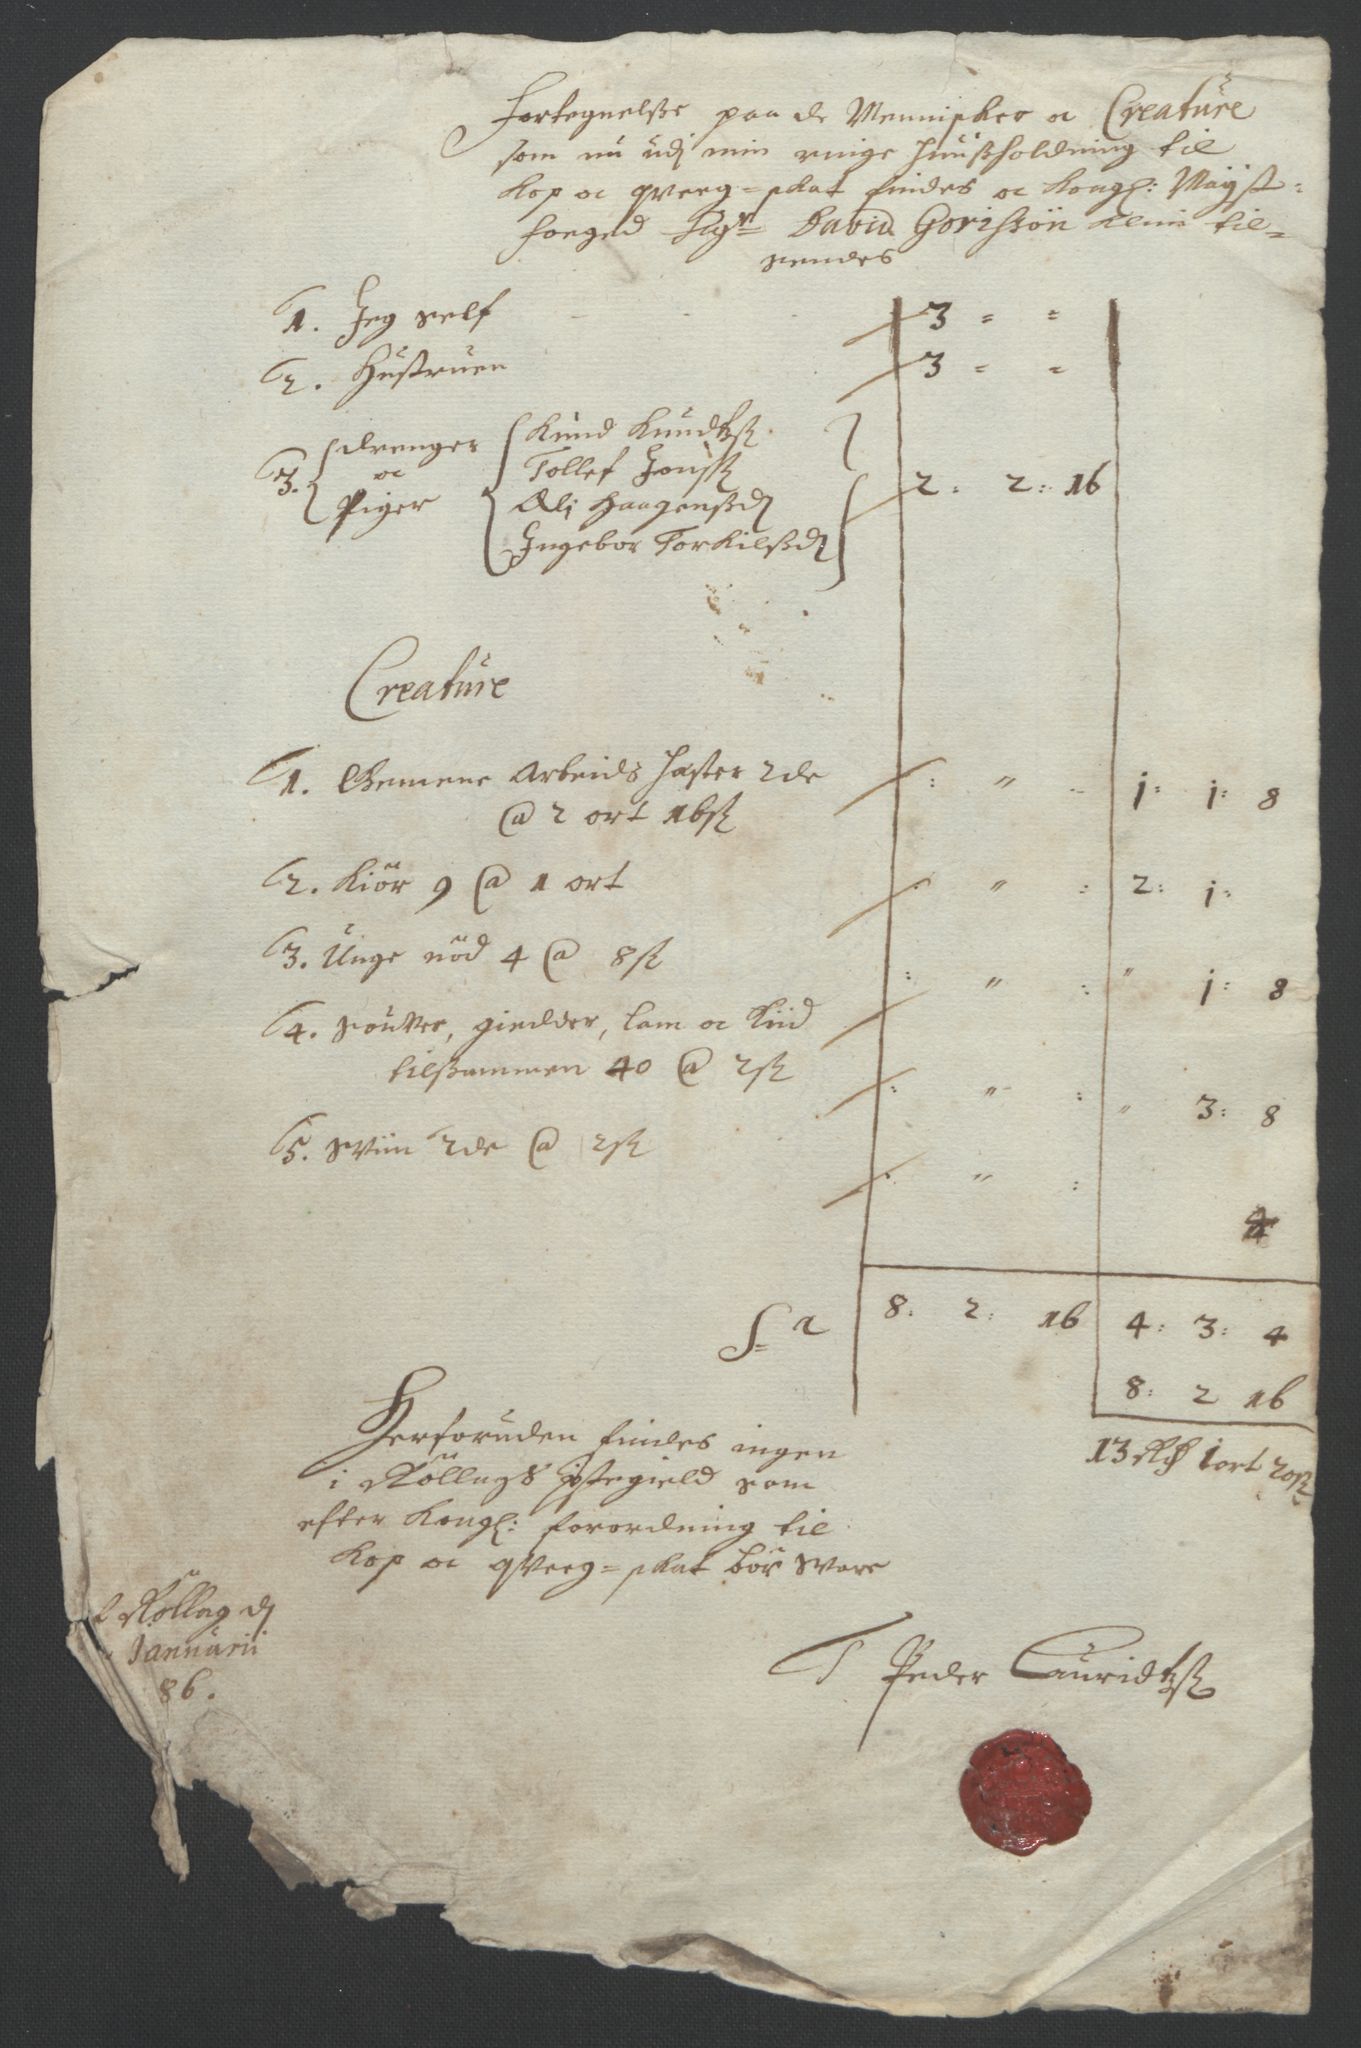 Fortegnelsse paa de Mennisker oc Creature
som nu udj min ringe Huußholdning til
Kop oc qveeg=skat findes oc Kongl: Mayst:
foeged Sigr David Gorissøn Klim til=
sendes
1. Jeg self 3 = =
2. Hustruen 3 = =
3. drenger oc Piger
Knud Knudtzß
Tollef Jonsß
Oli Haagenßdj
Ingebor Torkilßdj
2: 2: 16
Creature
1. Gemene Arbeids hester 2de
@ 2 ort 16ß : " .. 1: 1: 8
2. Kiör 9 @ 1 ort : " : 2: 1:
3. Unge nöd 4 @ 8ß : " : " 1: 8
4. Souver, giedder, lam oc kiid
tilsammen 40 @ 2ß : " : " 3: 8
5. Sviin 2de @ 2ß : " : 4
S=a 8: 2: 16 4: 3: 4
8: 2 16
13 Rd 1 ort 20ß
Herforuden findes ingen
i Röllugs Pstegield som
efter Kongl: forordning til
Kop oc qveeg=skat bör svare
Röllag dj
Januarii
86.
Peder Lauridtzß